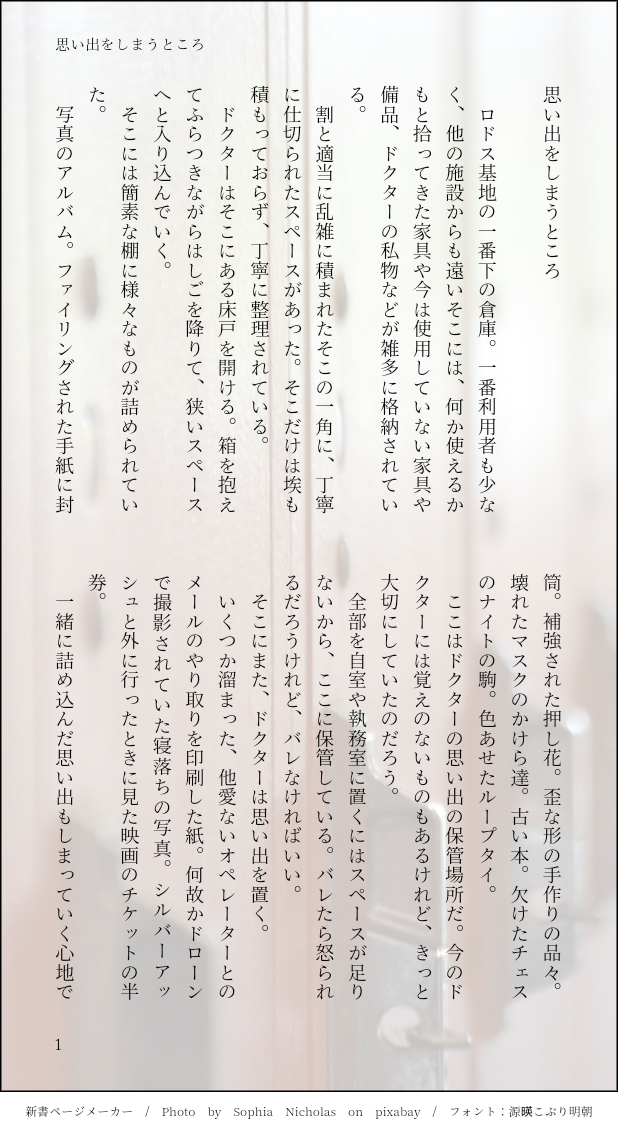 思い出をしまうところ
思い出をしまうところ
ロドス基地の一番下の倉庫。一番利用者も少な
く、他の施設からも遠いそこには、何か使えるか
もと拾ってきた家具や今は使用していない家具や
備品、ドクターの私物などが雑多に格納されてい
る。
割と適当に乱雑に積まれたそこの一角に、丁寧
に仕切られたスペースがあった。そこだけは埃も
積もっておらず、丁寧に整理されている。
ドクターはそこにある床戸を開ける。箱を抱え
てふらつきながらはしごを降りて、狭いスペース
へと入り込んでいく。
そこには簡素な棚に様々なものが詰められてい
た。
写真のアルバム。ファイリングされた手紙に封
筒。補強された押し花。歪な形の手作りの品々。
壊れたマスクのかけら達。古い本。欠けたチェス
のナイトの駒。色あせたループタイ。
ここはドクターの思い出の保管場所だ。今のド
クターには覚えのないものもあるけれど、きっと
大切にしていたのだろう。
全部を自室や執務室に置くにはスペースが足り
ないから、ここに保管している。バレたら怒られ
るだろうけれど、バレなければいい。
そこにまた、ドクターは思い出を置く。
いくつか溜まった、他愛ないオペレーターとの
メールのやり取りを印刷した紙。何故かドローン
で撮影されていた寝落ちの写真。シルバーアッ
シュと外に行ったときに見た映画のチケットの半
券。
一緒に詰め込んだ思い出もしまっていく心地で
1
新書ページメーカー / Photo by Sophia Nicholas on pixabay / フォント：源暎こぶり明朝